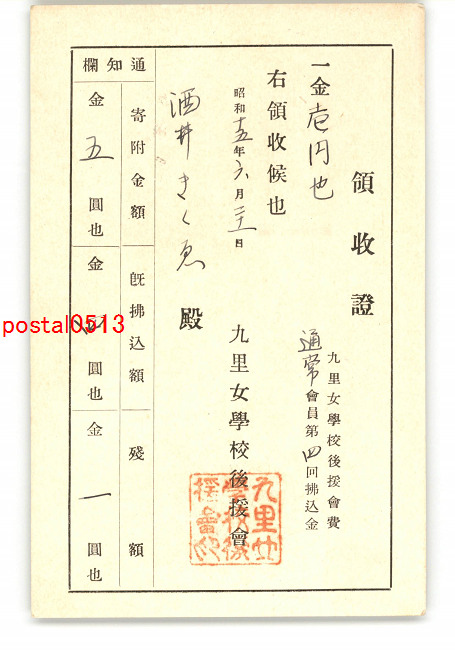 領收證
九里女學校後援會費
通常會員第四回拂込金
一金壱円也
右領收候也
昭和十五年六月二十一日
九里女學校後援會
酒井きくゑ殿
通知欄
寄附金額
金五圓也
既拂込額
金四圓也
殘額
金一圓也
九里女
學校後
援會印
postal0513